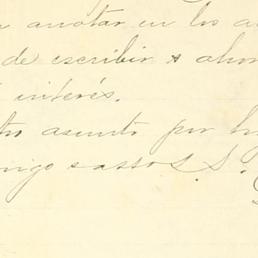 anotar en los a
de escribir & ahor
interés.
tro asunto por h
migo e atto S. S.